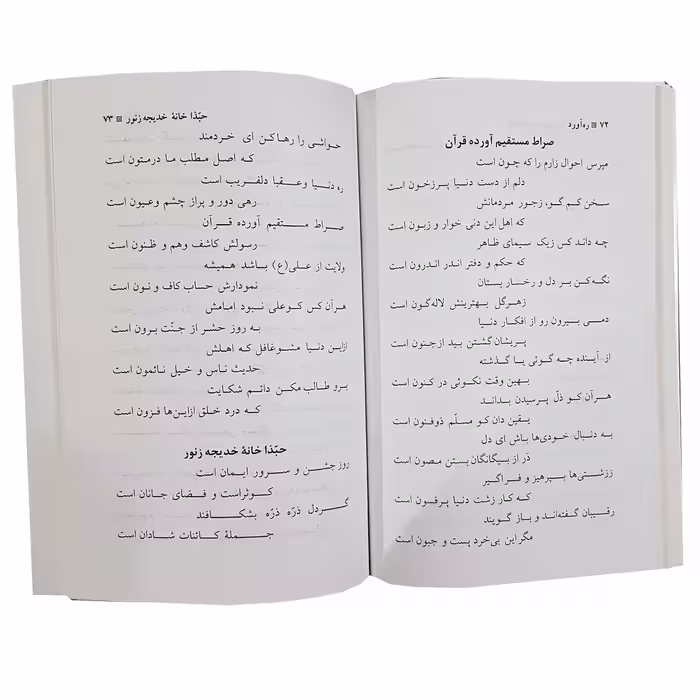 ۷۲ ■ ره‌آورد
صراط مستقیم آورده قرآن
مپرس احوال زارم را که چون است
دلم از دست دنیا پرزخون است
سخن کم گو، زجور مردمانش
که اهل این دنی خوار و زبون است
چه داند کس زیک سیمای ظاهر
که حکم و دفتر اندر اندرون است
نگه‌کن بر دل و رخسار بستان
زهرگل بهترینش لاله‌گون است
دمی بیرون رو از افکار دنیا
پریشان گشتن بید ازجنون است
از آینده چه گوئی یا گذشته
بهین وقت نکوئی در کنون است
هرآن کو ذلّ پرسیدن بداند
یقین دان کو مسلّم ذوفنون است
به دنبال خودی‌ها باش ای دل
دَر از بیگانگان بستن مصون است
ززشتی‌ها بپرهیز و فراگیر
که کار زشت دنیا پرفسون است
رقیبان گفته‌اند و باز گویند
مگر این بی‌خرد پست و جبون است
حبّذا خانهٔ خدیجه زنور ■ ۷۳
حواشی را رهاکن ای خردمند
که اصل مطلب ما درمتون است
ره دنیا وعقبا دلفریب است
رهی دور و پراز چشم وعیون است
صراط مستقیم آورده قرآن
رسولش کاشف وهم و ظنون است
ولایت از علی(ع) باشد همیشه
نمودارش حساب کاف و نون است
هرآن کس کوعلی نبود امامش
به روز حشر از جنّت برون است
ازاین دنیا مشوغافل که اهلش
حدیث ناس و خیل نائمون است
برو طالب مکن دائم شکایت
که درد خلق ازاین‌ها فزون است
حبّذا خانهٔ خدیجه زنور
روز جشن و سرور ایمان است
کوثراست و فضای جانان است
گردل ذرّه ذرّه بشکافند
جملهٔ کائنات شادان است